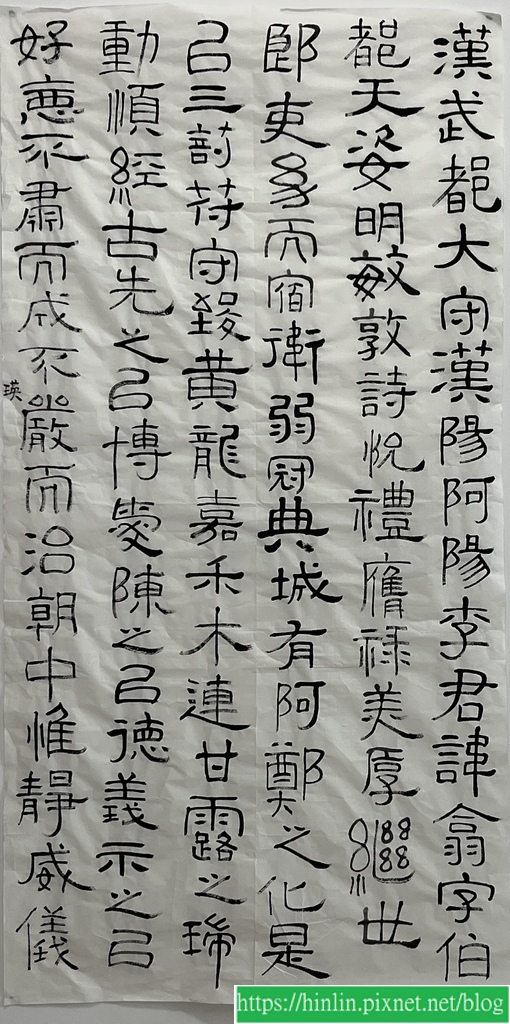 漢武都大守漢陽阿陽李君諱翕字伯
都天姿明敏敦詩悅禮膺祿美厚繼世
郎吏幼而宿衛弱冠典城有阿鄭之化是
以三剖符守致黃龍嘉禾木連甘露之瑞
動順經古先之以博愛陳之以德義示之以
好惡不肅而成不嚴而治朝中惟靜威儀
瑛
https://hinlin.pixnet.net/blog